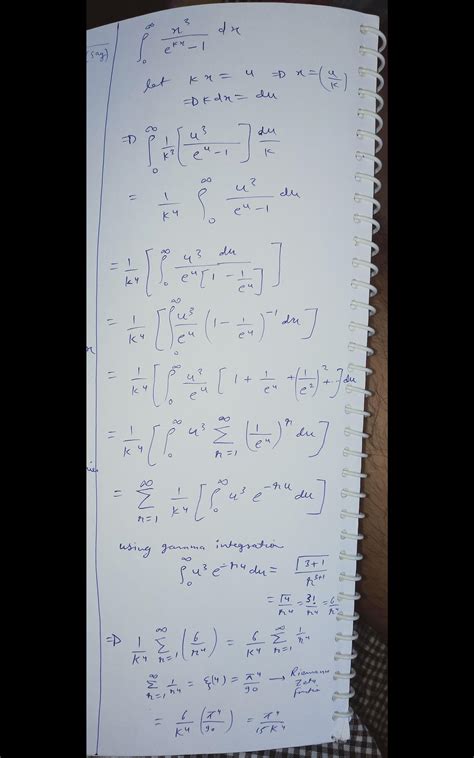 ∫₀^∞ x³/(e^{kx}-1) dx
let kx = u ⇒ x = (u/k)
⇒ k dx = du
⇒ ∫₀^∞ 1/k³ [u³/(e^u-1)] du/k
= 1/k⁴ ∫₀^∞ u³/(e^u-1) du
= 1/k⁴ [∫₀^∞ u³ du/(e^u [1 - 1/e^u])]
= 1/k⁴ [∫₀^∞ u³/e^u (1 - 1/e^u)^{-1} du]
= 1/k⁴ [∫₀^∞ u³/e^u [1 + 1/e^u + (1/e²)² + ] du
= 1/k⁴ [∫₀^∞ u³ ∑_{n=1}^∞ (1/e^u)^n du]
= ∑_{n=1}^∞ 1/k⁴ [∫₀^∞ u³ e^{-nu} du]
using gamma integration
∫₀^∞ u³ e^{-nu} du = Γ3+1/n^{3+1}
= Γ4/n⁴ = 3!/n⁴ = 6/n⁴
⇒ 1/k⁴ ∑_{n=1}^∞ (6/n⁴) = 6/k⁴ ∑_{n=1}^∞ 1/n⁴
∑_{n=1}^∞ 1/n⁴ = ξ(4) = π⁴/90 → Riemann
Zeta
= 6/k⁴ (π⁴/90) = π⁴/15k⁴